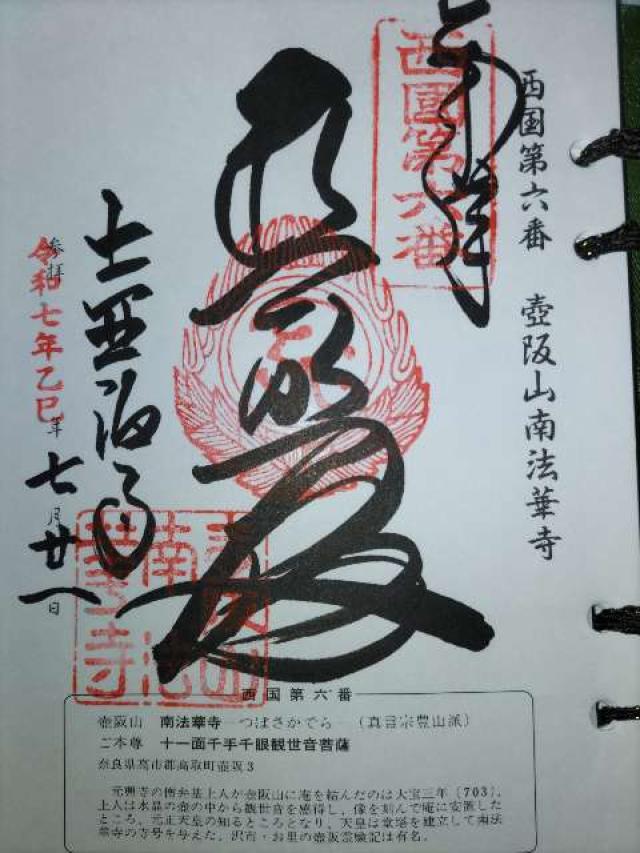 西国第六番　壺阪山南法華寺
奉拝
西國第六番
普照殿
壺阪寺
参拝
令和七年乙巳年七月廿 日
壺阪山
南法
華寺
西国第六番
壺阪山　南法華寺―つぼさかでら―（真言宗豊山派）
ご本尊　十一面千手千眼観世音菩薩
奈良県高市郡高取町壺坂3
元興寺の僧弁基上人が壺阪山に庵を結んだのは大宝三年〔703〕。
上人は水晶の壺の中から観世音を感得し、像を刻んで庵に安置した
ところ、元正天皇の知るところとなり、天皇は堂塔を建立して南法
華寺の寺号を与えた。沢市・お里の壺阪霊験記は有名。